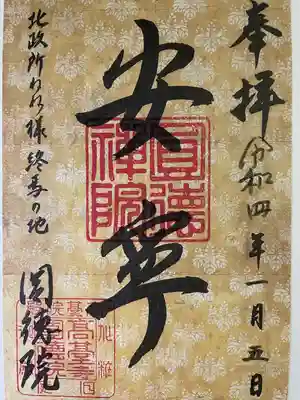 奉拝 令和四年一月五日
安寧
北政所ねね様終焉の地
圓徳院